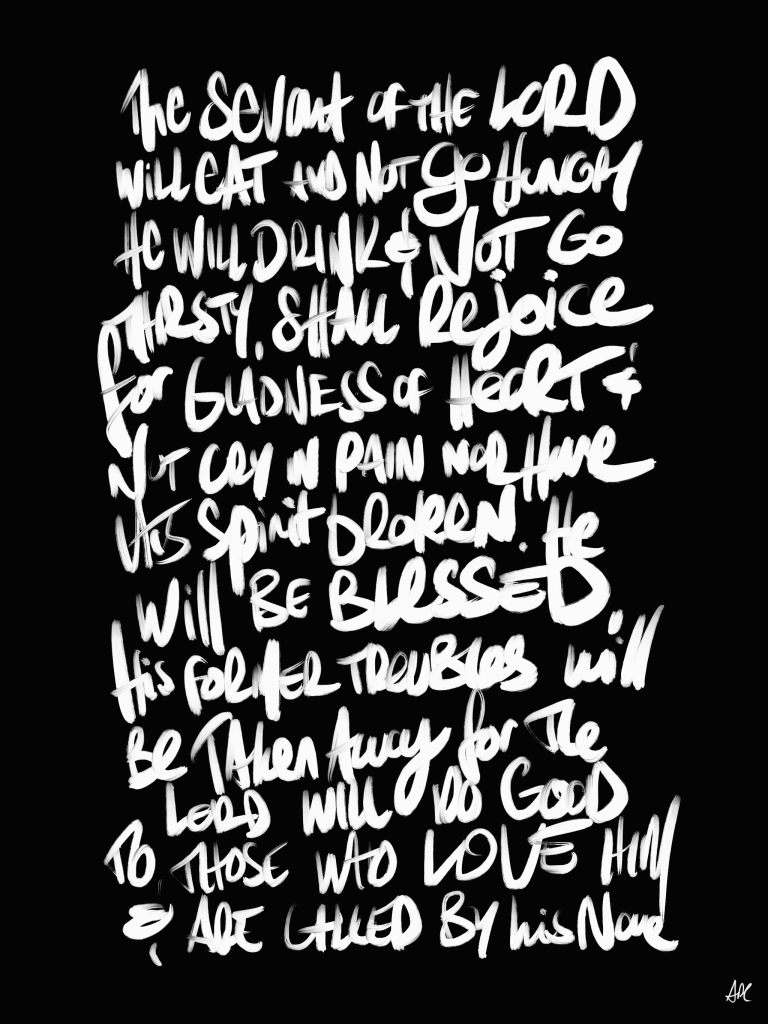 The Servant OF THE LORD
Will EAT AND NOT go HUNGRY
HE WILL DRINK & NOT GO
THIRSTY. SHALL Rejoice
for GLADNESS OF HEART &
NOT CRY IN PAIN NOR Have
His Spirit BROKEN. He
Will BE BLESSED
His FORMER TROUBLES will
Be Taken Away for The
LORD WILL DO GOOD
TO THOSE WHO LOVE HIM
& ARE CALLED By his Name